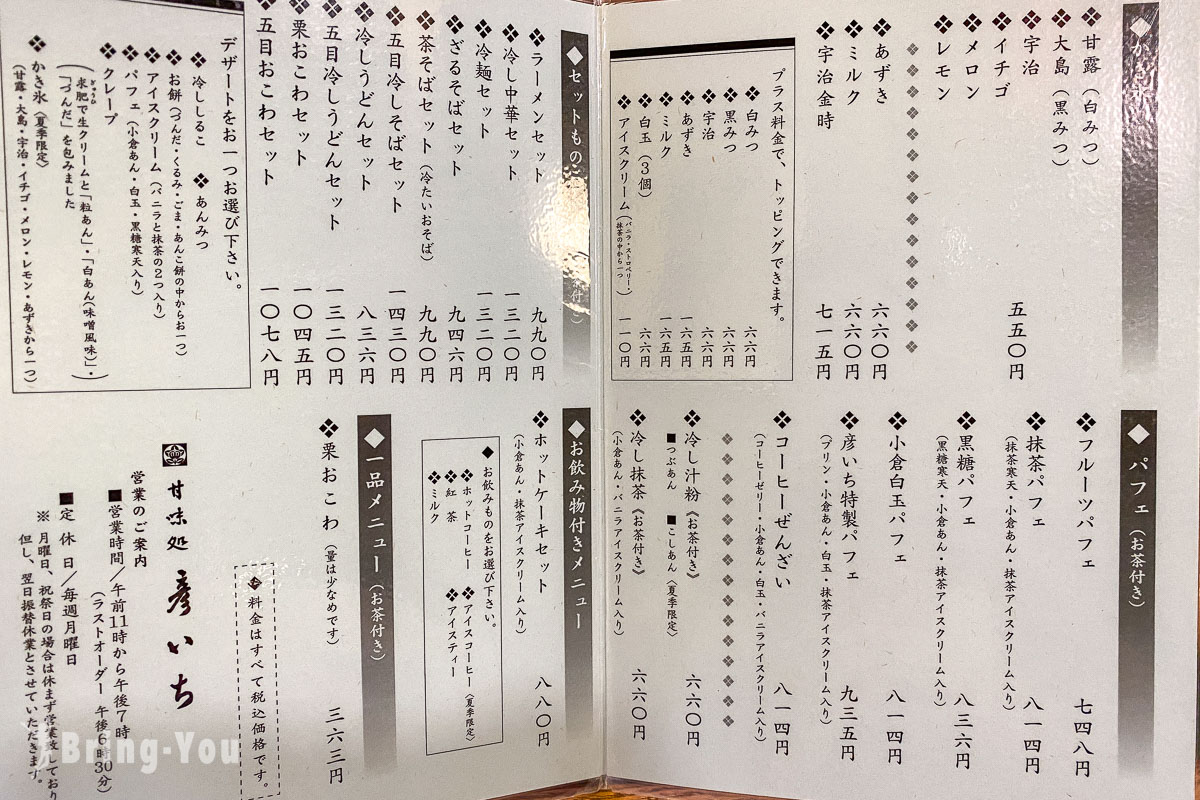 ◆かき氷
❖甘露（白みつ）
❖大島（黒みつ）
❖宇治
❖イチゴ
❖メロン
❖レモン
五五〇円
❖あずき 六六〇円
❖ミルク 六六〇円
❖宇治金時 七一五円
プラス料金で、トッピングできます。
❖白みつ 六六円
❖黒みつ 六六円
❖宇治 六六円
❖あずき 一六五円
❖ミルク 一六五円
❖白玉（３個） 六六円
❖アイスクリーム（バニラ・ストロベリー・抹茶の中から一つ） 一一〇円
◆パフェ（お茶付き）
❖フルーツパフェ 七四八円
❖抹茶パフェ 八一四円
（抹茶寒天・小倉あん・抹茶アイスクリーム入り）
❖黒糖パフェ 八三六円
（黒糖寒天・小倉あん・抹茶アイスクリーム入り）
❖小倉白玉パフェ 八一四円
❖彦いち特製パフェ 九三五円
（プリン・小倉あん・白玉・抹茶アイスクリーム入り）
❖コーヒーぜんざい 八一四円
（コーヒーゼリー・小倉あん・白玉・バニラアイスクリーム入り）
❖冷し汁粉《お茶付き》 六六〇円
■つぶあん ■こしあん〈夏季限定〉
❖冷し抹茶《お茶付き》 六六〇円
（小倉あん・バニラアイスクリーム入り）
◆セットもの
茶付）
❖ラーメンセット 九九〇円
❖冷し中華セット 一三二〇円
❖冷麺セット 一三二〇円
❖ざるそばセット 九四六円
❖茶そばセット（冷たいおそば） 九九〇円
❖五目冷しそばセット 一四三〇円
❖冷しうどんセット 八三六円
❖五目冷しうどんセット 一三二〇円
❖栗おこわセット 一〇四五円
❖五目おこわセット 一〇七八円
デザートをお一つお選び下さい。
❖冷ししるこ ❖あんみつ
❖お餅（づんだ・くるみ・ごま・あんこ餅の中からお一つ）
❖アイスクリーム（バニラと抹茶の２つ入り）
❖パフェ（小倉あん・白玉・黒糖寒天入り）
❖クレープ
（求肥で生クリームと「粒あん」・「白あん（味噌風味）」・
「づんだ」を包みました
ぎゅうひ
❖かき氷〈夏季限定〉
（甘露・大島・宇治・イチゴ・メロン・レモン・あずきから一つ）
◆お飲み物付きメニュー
❖ホットケーキセット 八八〇円
（小倉あん・抹茶アイスクリーム入り）
◆お飲みものをお選び下さい。
❖ホットコーヒー ❖アイスコーヒー〈夏季限定〉
❖紅茶 ❖アイスティー
❖ミルク
◆一品メニュー（お茶付き）
❖栗おこわ（量は少なめです） 三六三円
❖料金はすべて税込価格です。
甘味処 彦いち
営業のご案内
■営業時間／午前11時から午後7時
（ラストオーダー 午後6時30分）
■定休日／毎週月曜日
※月曜日、祝祭日の場合は休まず営業致しており
但し、翌日振替休業とさせていただきます。
Bring-You